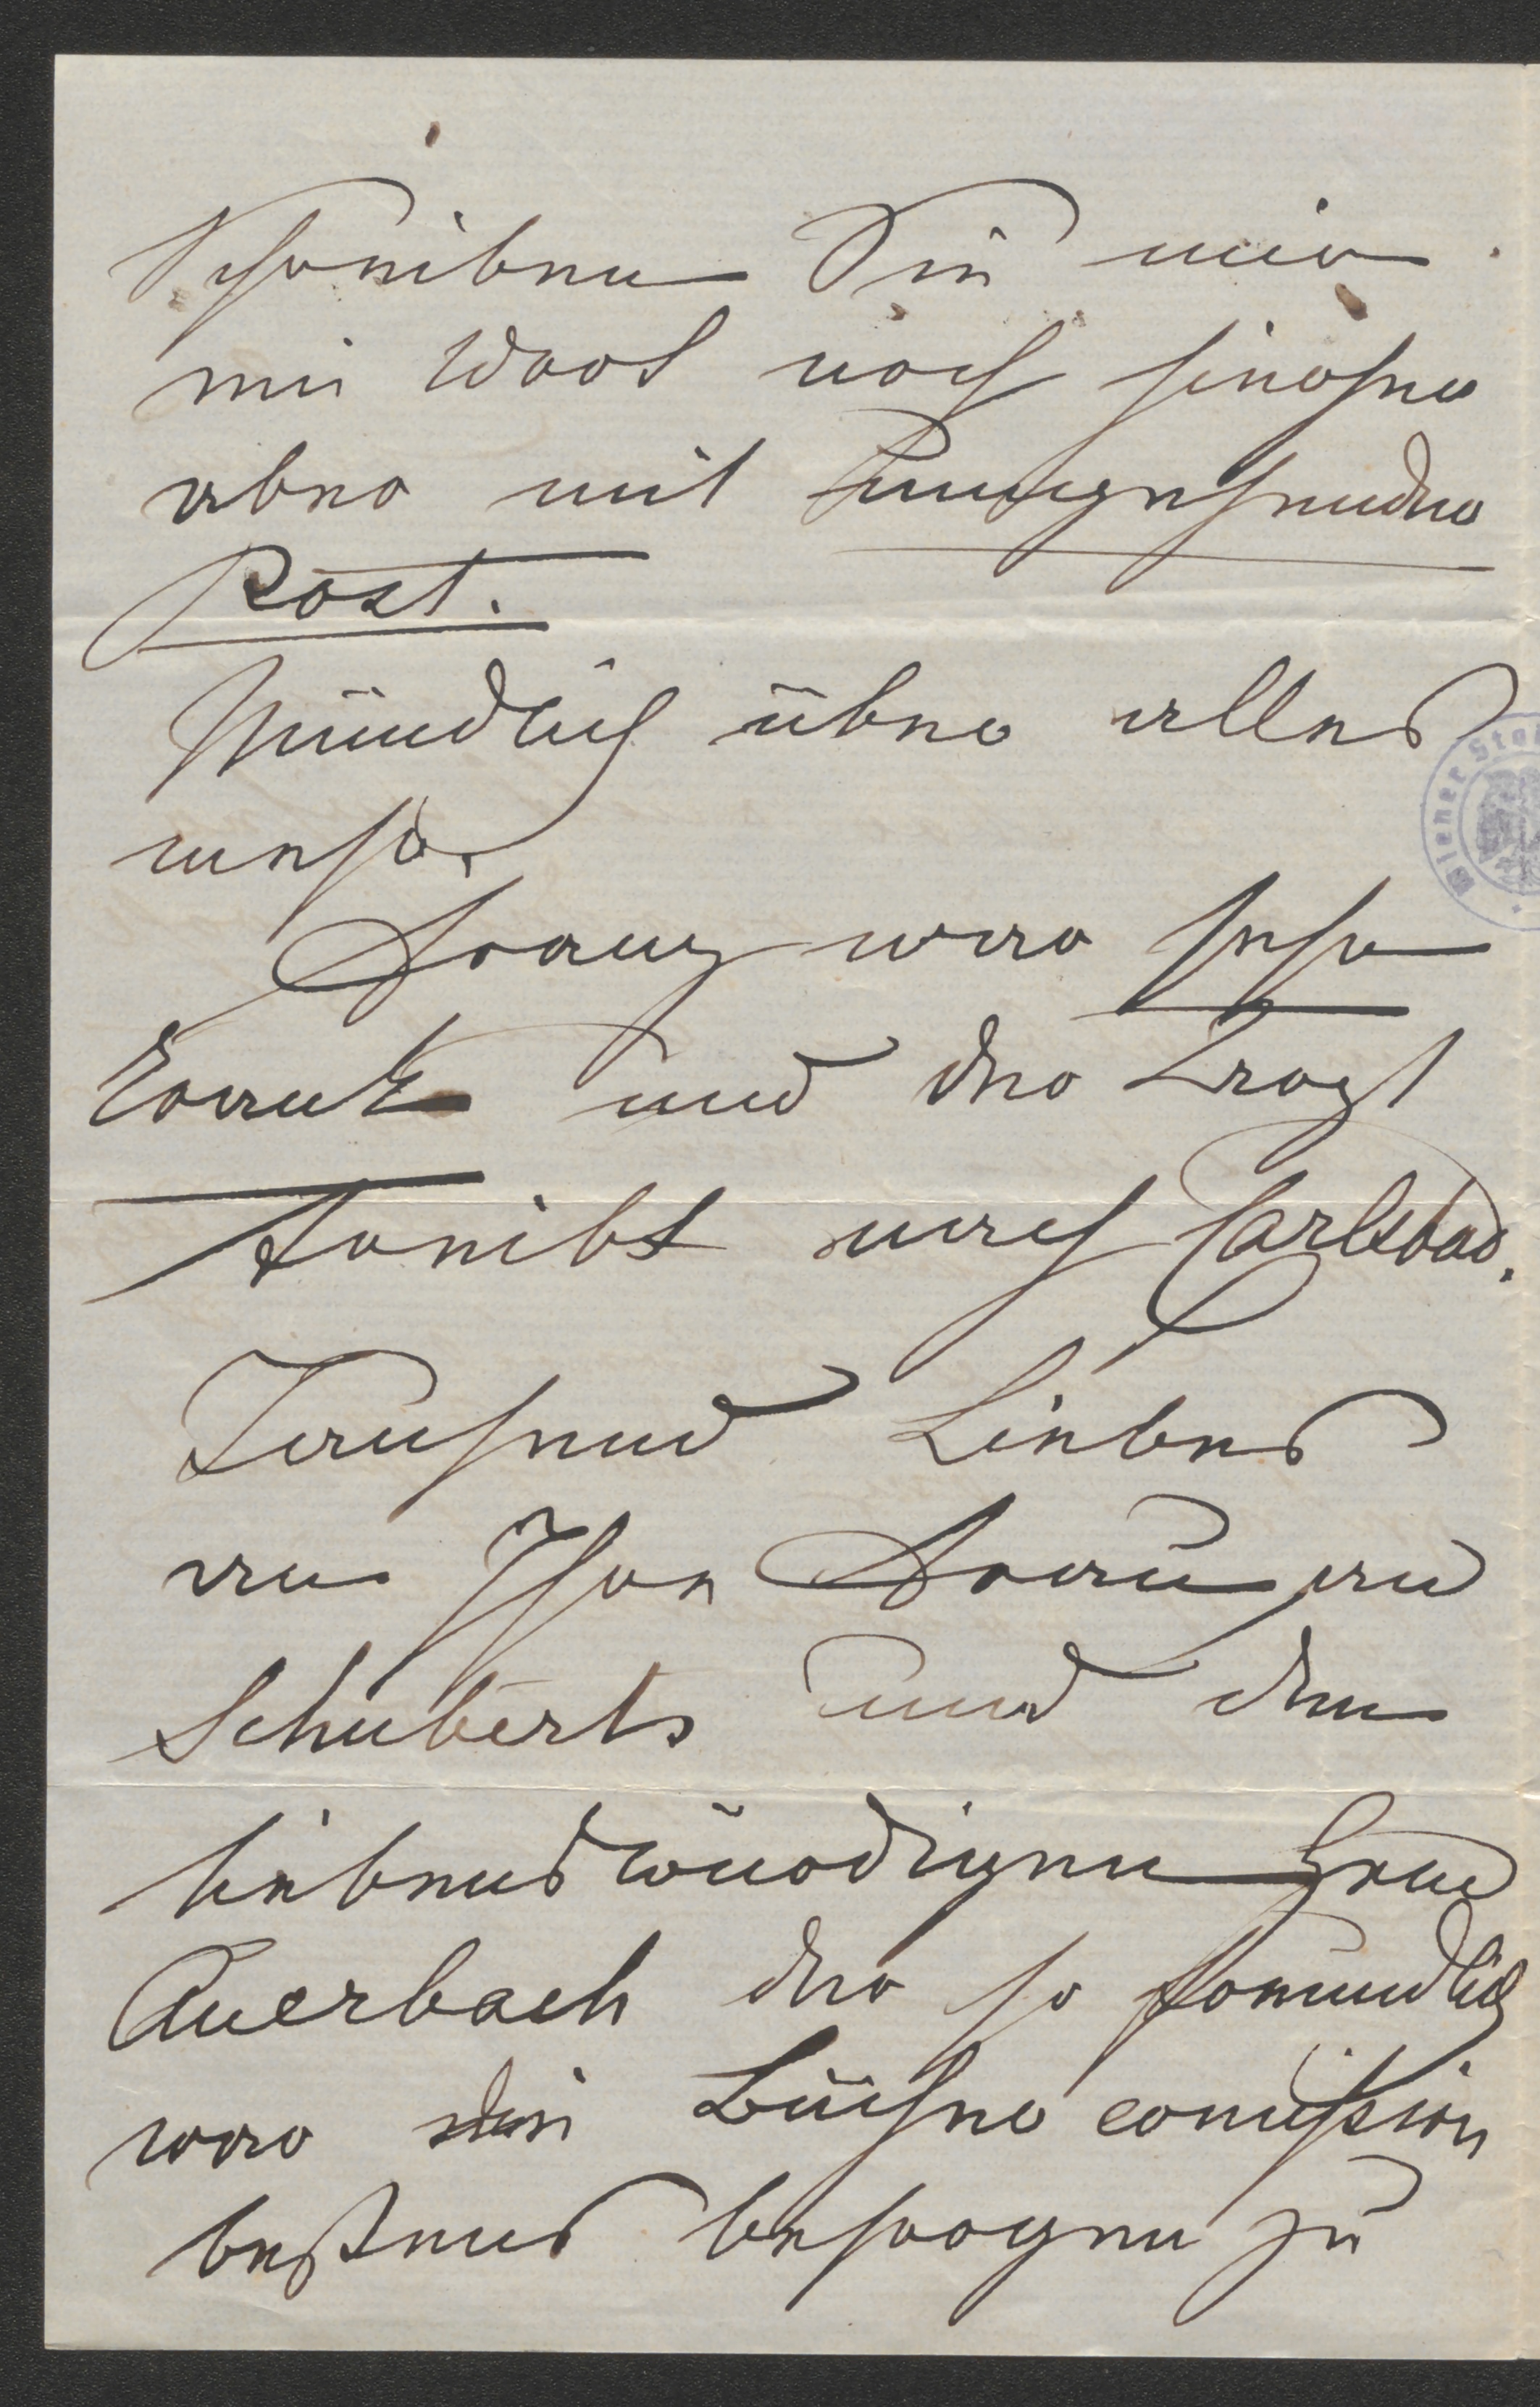 Schreiben Sie mir
ein Wort noch hierher
aber mit umgehender
Post.
Mündlich über alles
mehr.
Franz war sehr
krank und der Arzt
treibt nach Carlsbad.
Tausend Liebes
an Ihre Frau, an
Schuberts und den
liebenswürdigen Herrn
Auerbach der so freundlich
war die Bücher comission
bestens besorgen zu
Wiener Sta